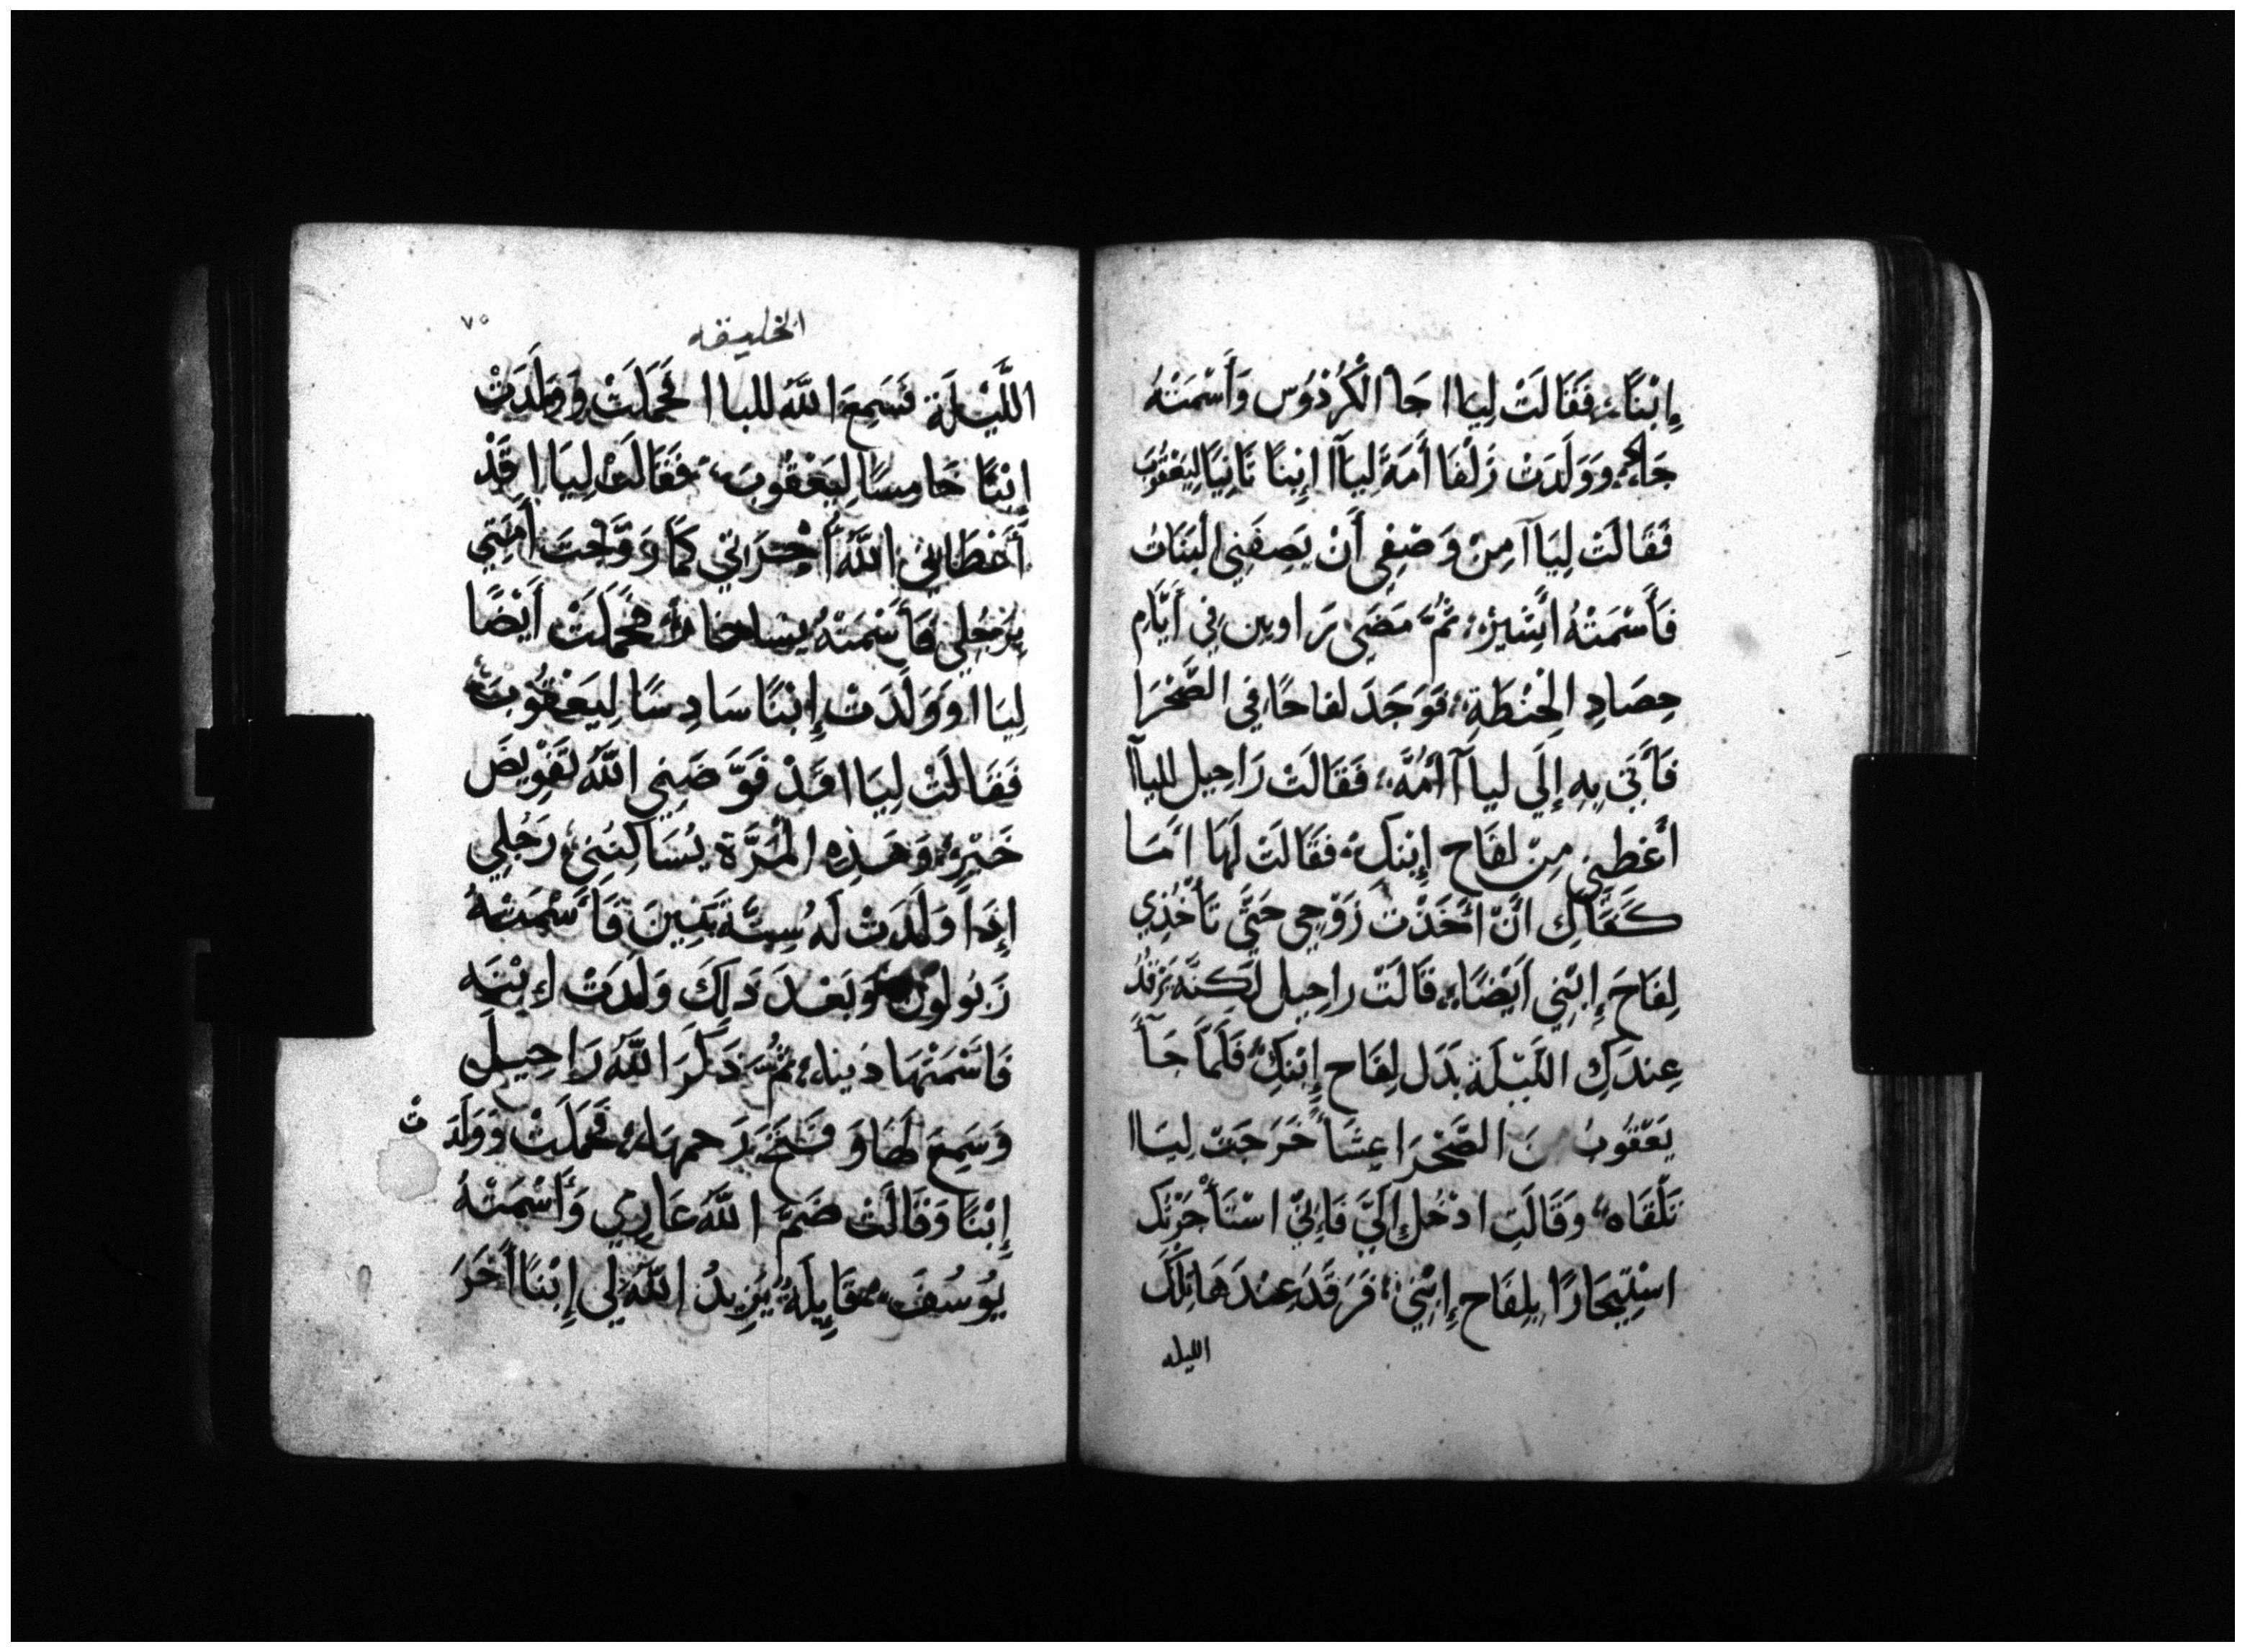 إِبْنًا، فَقَالَتْ لِيَاا جَا الْكُرْدُوس وَأَسْمَتْهُ
جَاد، وَوَلَدَتْ زَلْفَا أَمَةُ لِيَآا إِبْنًا ثَانِيًا لِيَعْقُوبَ
فَقَالَتْ لِيَاآ مِنْ وَصْفِي أَنْ يَصِفَنِي الْبَنَاتُ
فَأَسْمَتْهُ أَشِيرْ، ثُمَّ مَضَى رَاوبين فِي أَيَّامِ
حِصَادِ الْحِنْطَةِ، فَوَجَدَ لفاحًا، فِي الصَّحْرَا
فَأَتَى بِهِ إِلَى لياآ أُمُّهُ، فَقَالَتْ رَاحِيل للياآ
أَعْطِنِي مِنْ لفَاح إِبْنِكِ، فَقَالَتْ لَهَا امَا
كَفَاكِ انَّ أَخَذْتِ زَوْجِي حَتَّى تَأْخُذِي
لِفَاحَ إِبْنِي أَيْضًا، قَالَتْ راحِيل لَكِنَّه يَرْقُدُ
عِندَكِ اللَّيْلَة بَدَل لِفَاح إِبْنِكِ فَلَمَّا جَآ
يَعْقُوبُ مِنَ الصَّحْرَا عِشَآ خَرَجَتْ لِيَاا
تَلْقَاه، وَقَالَتِ ادْخُل إِلَيَّ فَإِنِّي اسْتَأْجَرْتُكَ
اسْتِيجَارًا بِلِفَاح إِبْنِي، فَرَقَدَ عِنْدَهَا تِلْكَ
الليله
٧٥
الخليقه
اللَّيْلَة فَسَمِعَ اللَّهُ للياا فَحَمَلَتْ وَوَلَدَتْ
إِبْنًا خَامِسًا لِيَعْقُوبَ، فَقَالَتْ لِيَاا قَدْ
أَعْطَانِي اللَّهُ أجْرَاتي كَمَا زَوَّجْتُ أَمَتِي
بِرَجُلِي فَأَسْمَتْهُ يساخار ثُمَّ حَمَلَتْ أَيْضًا
لِيَاا وَوَلَدَتْ إِبْنًا سَادِسًا لِيَعْقُوبَ
فَقَالَتْ لِيَاا قَدْ فَوَّضَنِي اللَّهُ تَفْوِيضَ
خَيْرٍ، وَهَذِهِ الْمَرَّة يُسَاكِنُنِي، رَجُلِي
إِذَا وَلَدَتْ لَهُ سِتَّة بَنِينَ فَأَسْمَتْهُ
زَبُولُون وَبَعْدَ ذَلِكَ وَلَدَتْ إِبْنَه
فَاسْمَتْهَا دَينا، ثُمَّ ذَكَرَ اللَّهُ رَاحِيل
وَسَمِعَ لَهَا وَفَتَحَ رَحمهَا، فَحَمَلَتْ وَوَلَدَتْ
إِبْنًا وَقَالَتْ ضَمَّ اللَّهُ عَارِي وَأَسْمَتْهُ
يُوسُفَ، قَايِلَة يَزِيدُ اللَّهُ لِي إِبْنًا أَخَرَ